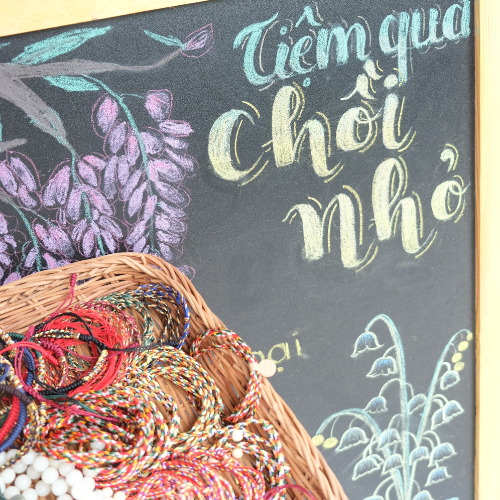 Tiệm quà
Chồi
Nhỏ
ại